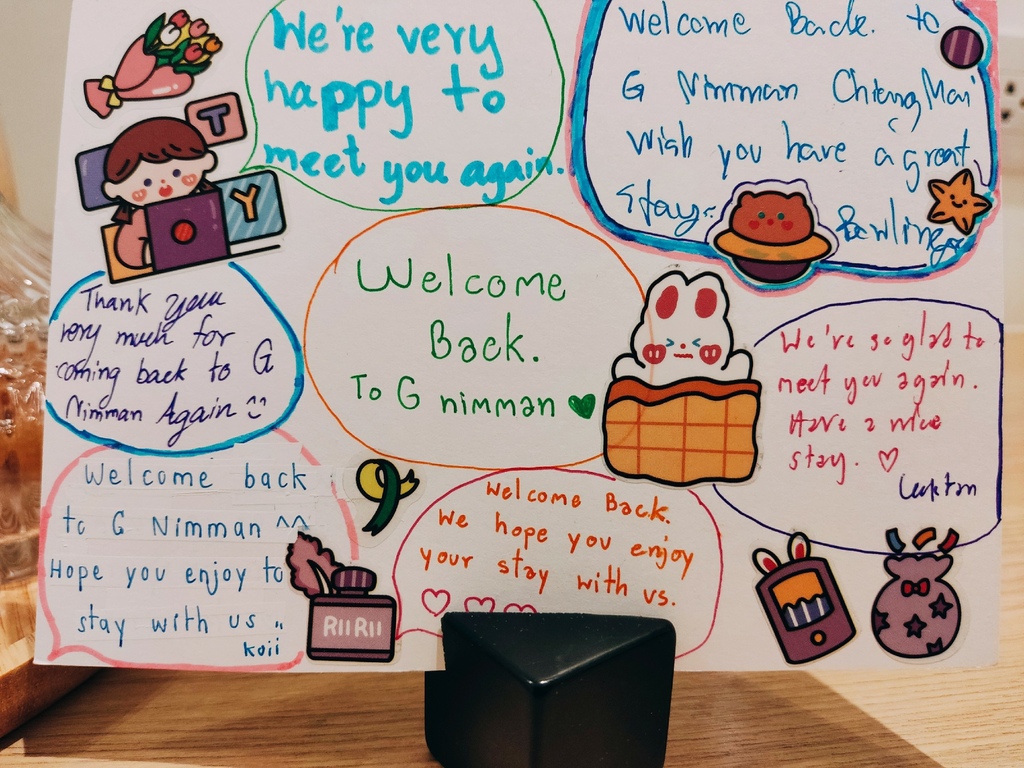 We're very
happy to
meet you again.
Welcome Back. to
G Nimman Chiang Mai
Wish you have a great
Stay.
Bowling
T
Y
Thank you
very much for
coming back to G
Nimman Again
Welcome
Back.
To G nimman
We're so glad to
meet you again.
Have a nice
stay.
Welcome back
to G Nimman ^^
Hope you enjoy to
stay with us
koii
RIIRII
Welcome Back.
We hope you enjoy
your stay with us.